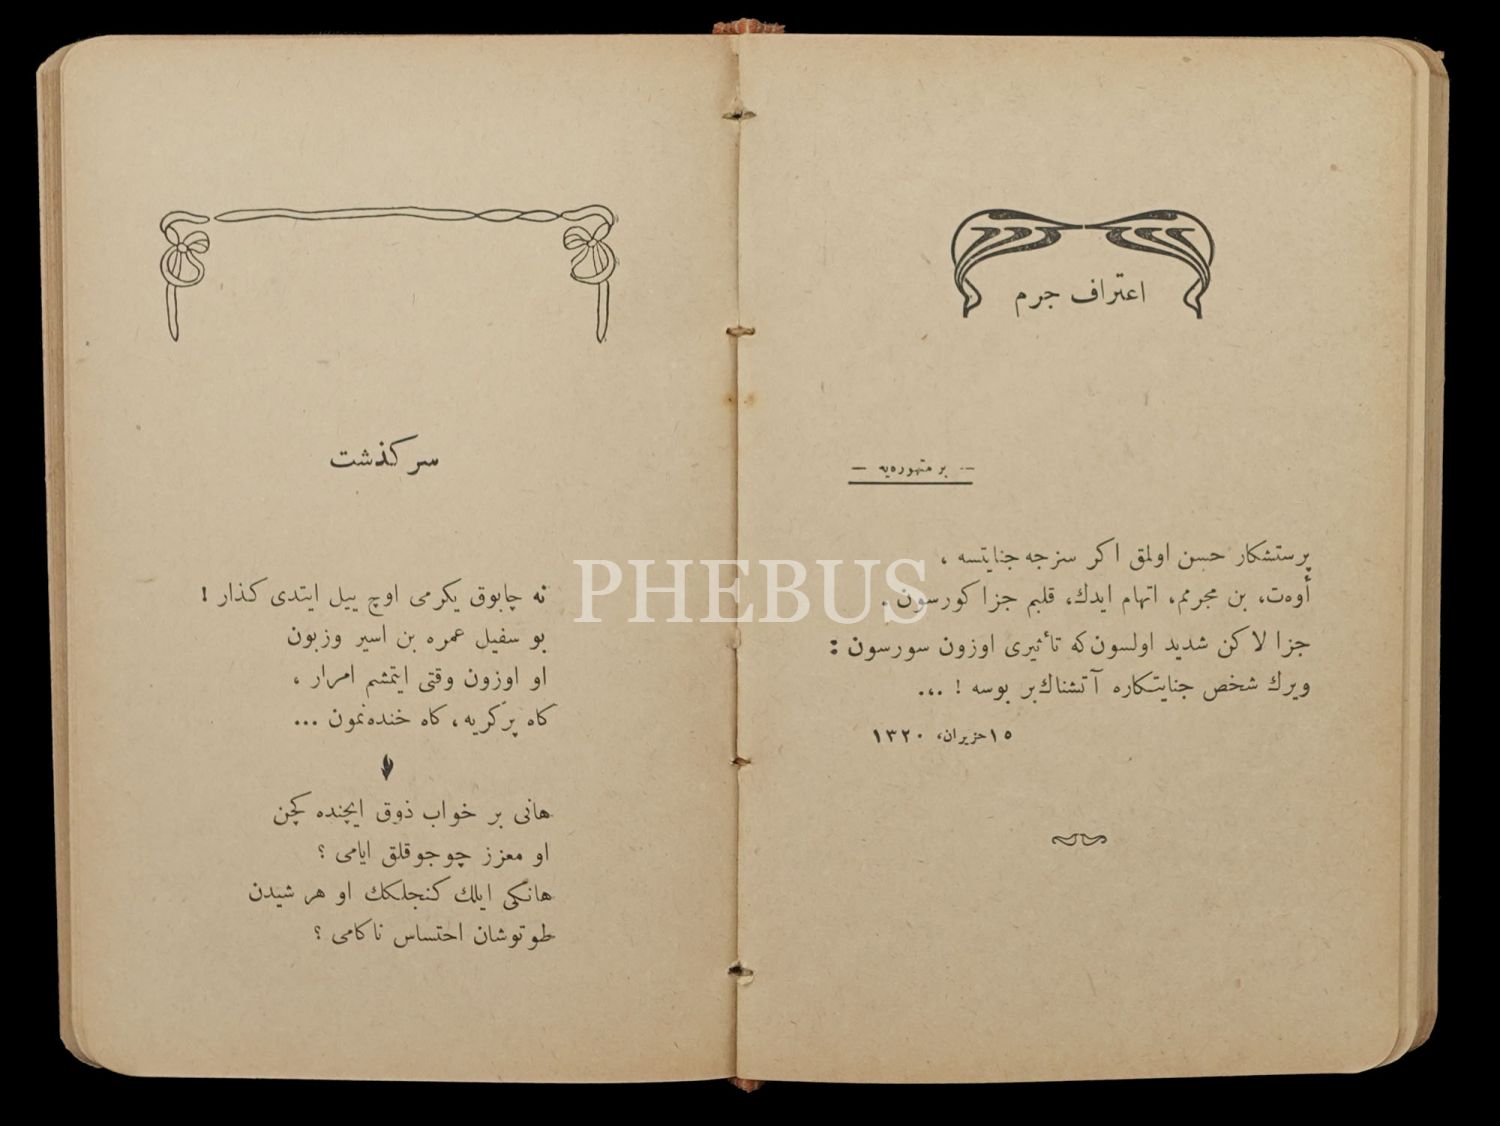 اعتراف جرم
— بر متهوره‌یه —
پرستشكار حسن اولمق اكر سزجه جنایتسه ،
أوه‌ت، بن مجرمم، اتهام ایدك، قلبم جزا كورسون .
جزا لاكن شدید اولسون‌كه تأثیری اوزون سورسون :
ویرك شخص جنایتكاره آتشناك‌بر بوسه ! ...
١٥ حزیران، ١٣٢٠
سركذشت
نه چابوق یكرمی اوچ ییل ایتدی كذار !
بو سفیل عمره بن اسیر وزبون
او اوزون وقتی ایتمشم امرار ،
كاه پرگریه، كاه خنده‌نمون ...
هانی بر خواب ذوق ایچنده كچن
او معزز چوجوقلق ایامی ؟
هانكی ایلك كنجلكك او هر شیدن
طوتوشان احتساس ناكامی ؟
PHEBUS